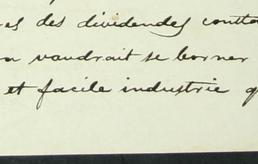 des dividendes
vaudrait se borner
et facile industrie